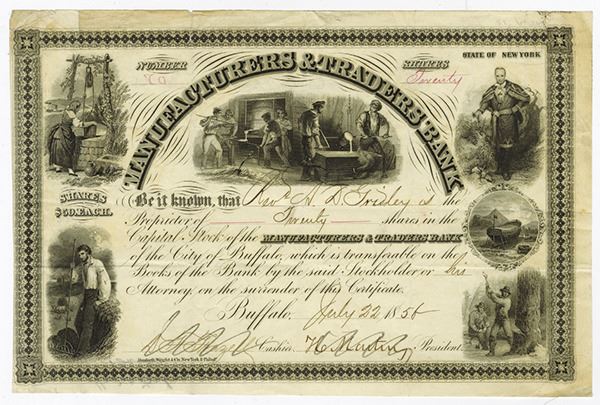 NUMBER
SHARES
STATE OF NEW YORK
Twenty
MANUFACTURERS & TRADERS BANK
SHARES
$50. EACH.
Be it known, that A. D. is the
Proprietor of Twenty shares in the
Capital Stock of the MANUFACTURERS & TRADERS BANK
of the City of Buffalo, which is transferable on the
Books of the Bank by the said Stockholder or his
Attorney, on the surrender of this Certificate.
Buffalo. July 22 1856
Cashier. President.
Danforth, Wright & Co. New York & Philad.